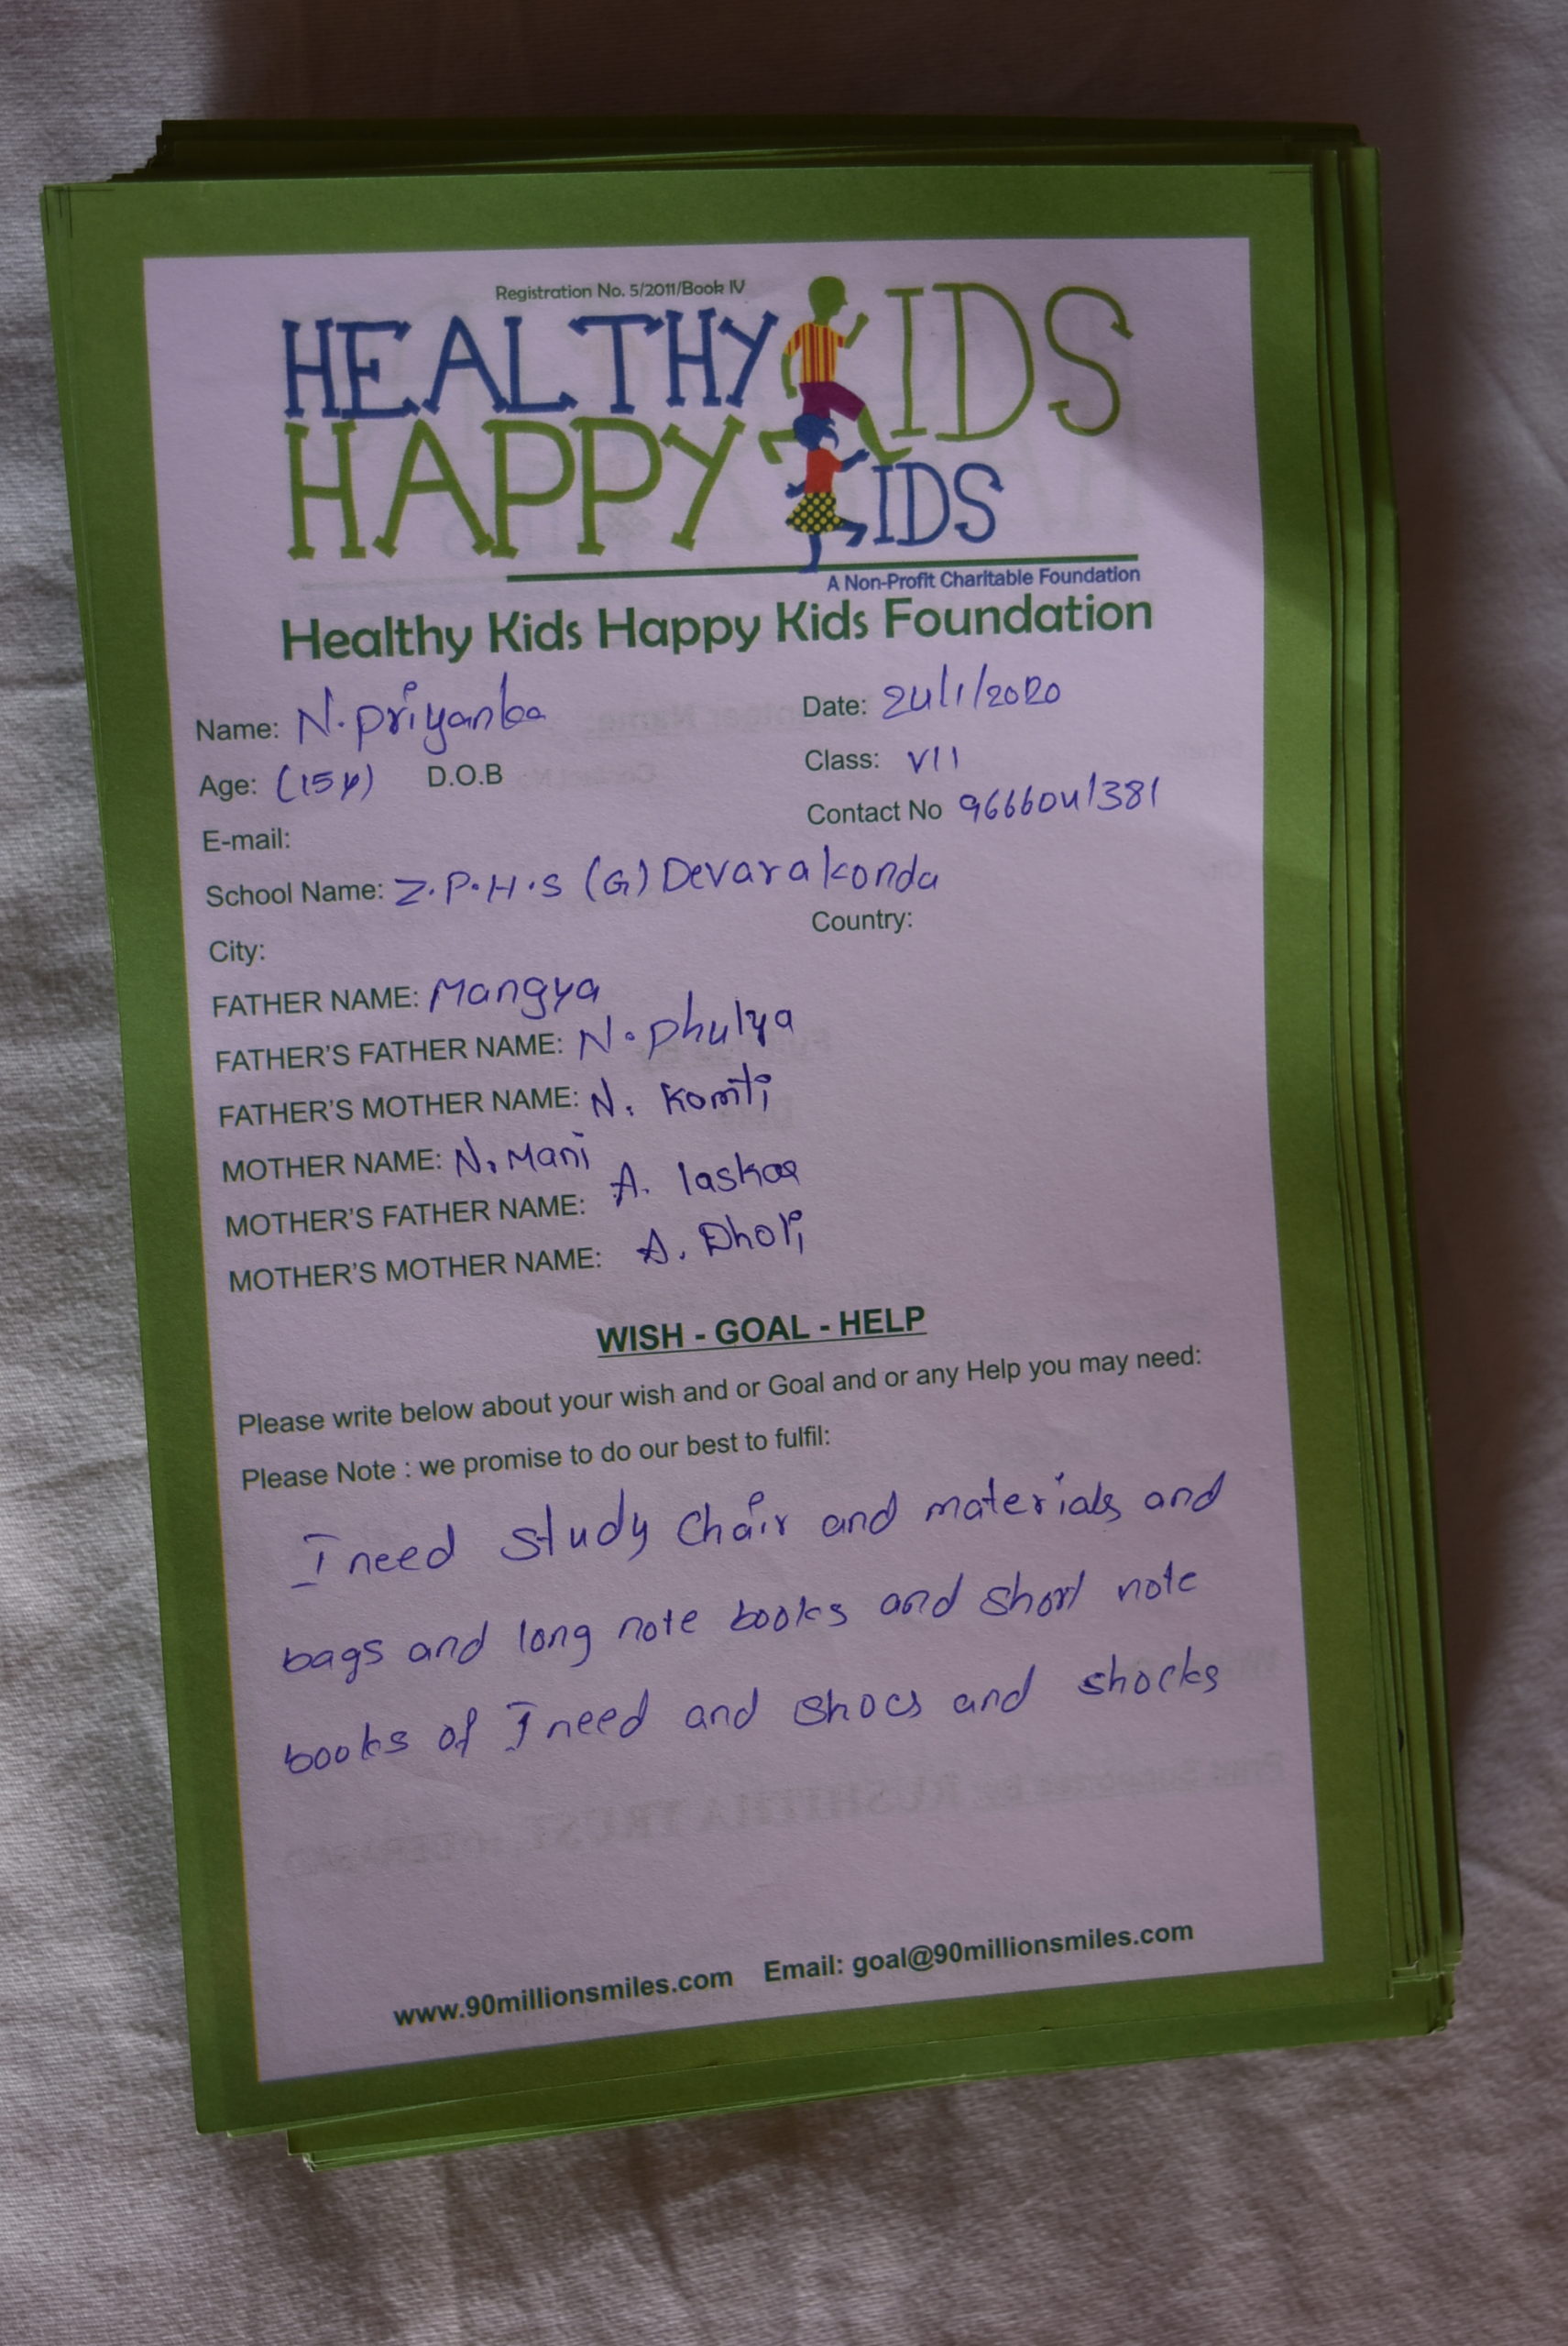 Registration No. 5/2011/Book IV
HEALTHY KIDS
HAPPY KIDS
A Non-Profit Charitable Foundation
Healthy Kids Happy Kids Foundation
Name: N. Priyanka Date: 24/1/2020
Age: (15y) D.O.B Class: VII
E-mail: Contact No 9666041381
School Name: Z.P.H.S (G) Devarakonda
City: Country:
FATHER NAME: Mangya
FATHER'S FATHER NAME: N. Phulya
FATHER'S MOTHER NAME: N. Komti
MOTHER NAME: N. Mani
MOTHER'S FATHER NAME: A. laskar
MOTHER'S MOTHER NAME: A. Dholi
WISH - GOAL - HELP
Please write below about your wish and or Goal and or any Help you may need:
Please Note : we promise to do our best to fulfil:
I need study chair and materials and
bags and long note books and short note
books of I need and shoes and shocks
www.90millionsmiles.com Email: goal@90millionsmiles.com